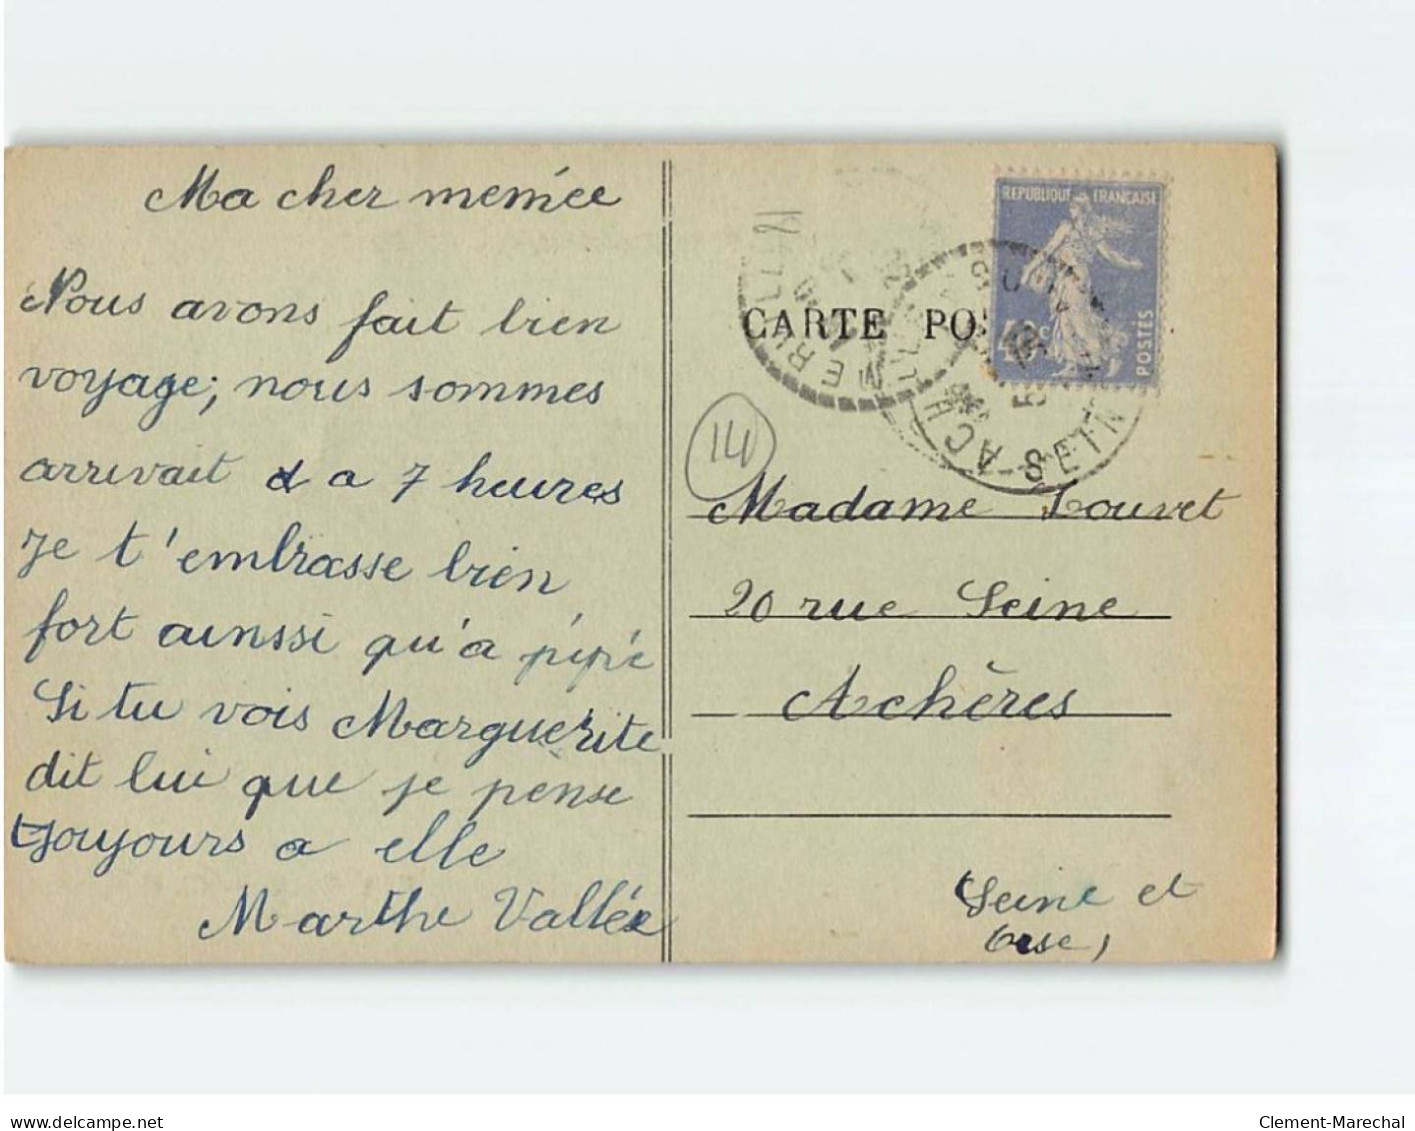 Ma cher memée
Nous avons fait bien
voyage, nous sommes
arrivait a 7 heures
Je t'embrasse bien
fort ainssi qu'a pépé
Si tu vois Marguerite
dit lui que je pense
toujours a elle
Marthe Vallée
REPUBLIQUE FRANÇAISE
40c
POSTES
CARTE PO
14
Madame Louvet
20 rue Seine
Achères
(Seine et
Oise)
delcampe.net
Clement-Marechal